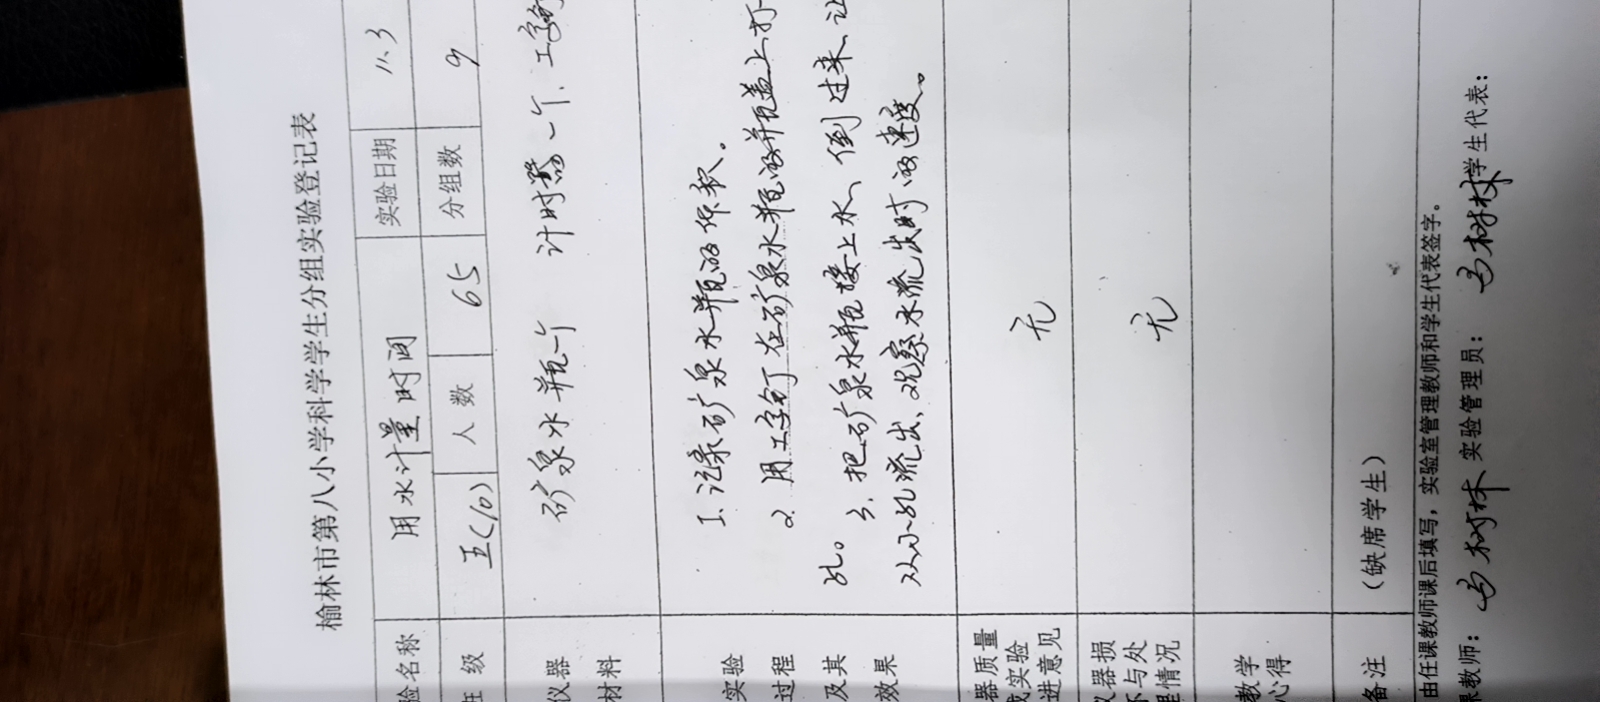 榆林市第八小学科学学生分组实验登记表
验名称 用水计量时间 实验日期 11.3
班 级 五(10) 人 数 65 分组数 9
仪器 矿泉水瓶一个 计时器一个、工字
材料
实验 1. 记录矿泉水瓶的体积。
过程 2. 用工字钉在矿泉水瓶的瓶盖上打一
及其 孔。 3. 把矿泉水瓶接上水、倒过来、让
效果 从小孔流出、观察水流出时的速度。
器质量
或实验 无
进意见
仪器损
坏与处 无
理情况
教学
心得
备注 (缺席学生)
由任课教师课后填写，实验室管理教师和学生代表签字。
课教师： 马树林 实验管理员： 马树林 学生代表：